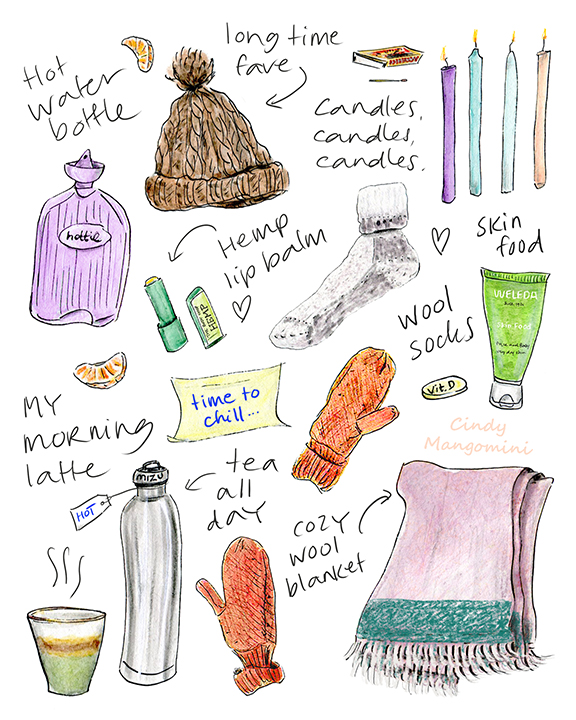 long time
fave
Hot
water
bottle
candles,
candles,
candles.
hottie
Hemp
lip balm
HEMP
skin
food
WELEDA
Skin Food
wool
socks
Vit.D
time to
chill...
Cindy
Mangomini
MY
morning
latte
MIZU
HOT
tea
all
day
cozy
wool
blanket